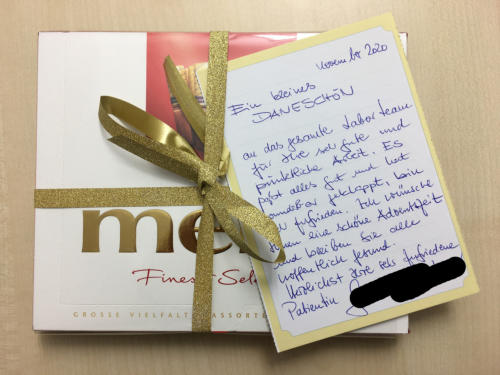 November 2020
Ein kleines
DANESCHÖN
an das gesamte Laborteam
für Ihre sehr gute und
pünktliche Arbeit. Es
paßt alles gut und hat
wunderbar geklappt, bin
sehr zufrieden. Ich wünsche
Ihnen eine schöne Adventszeit
und bleiben Sie alle
hoffentlich gesund.
Herzlichst Ihre sehr zufriedene
Patientin
me
Finest Sele
GROSSE VIELFALT ASSORTE